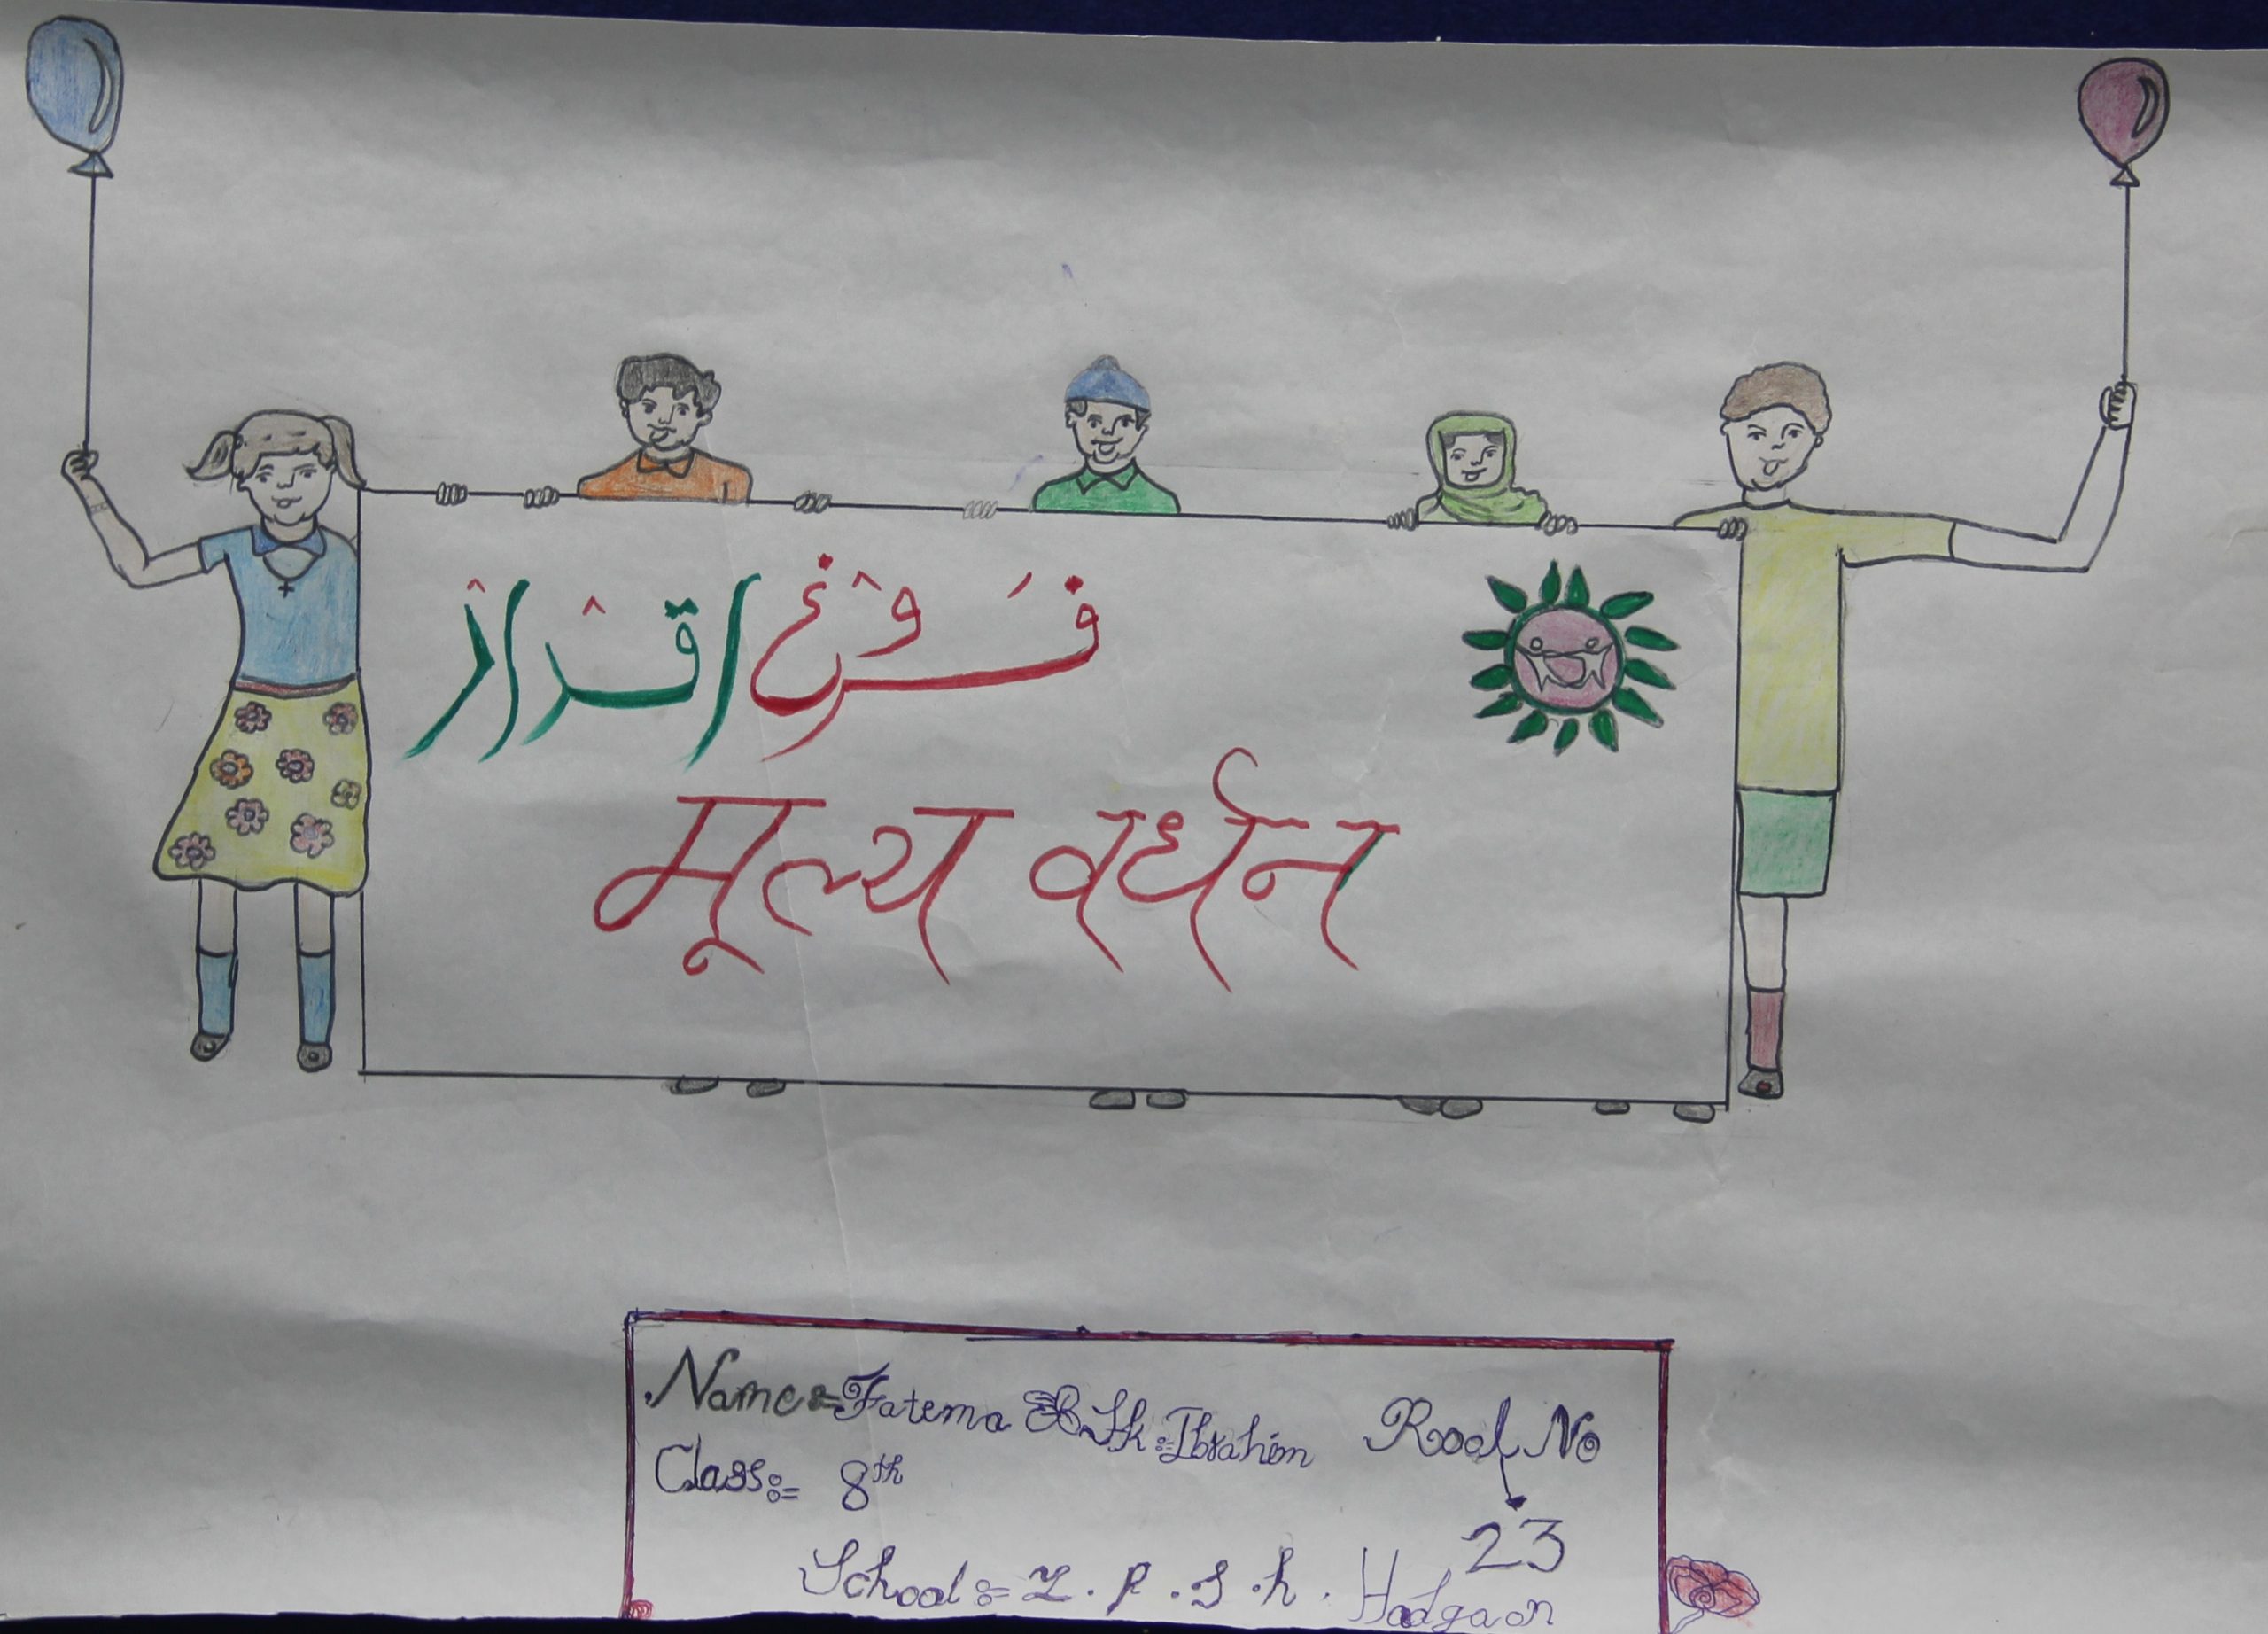 فروغ اقدار
मूल्य वर्धन
Name:= Fatema Sk:= Ibrahim Rool No
Class:= 8th
23
School:= Z.P.S.h. Hadgaon